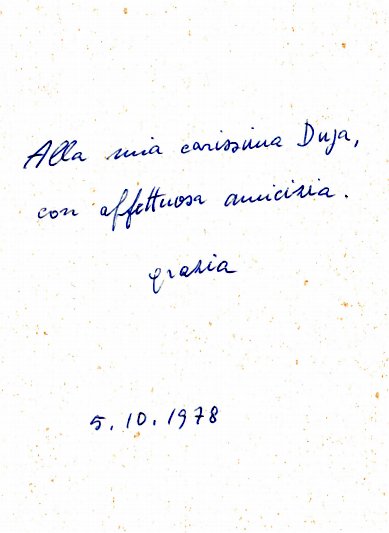 Alla mia carissima Duja,
con affettuosa amicizia.
grazia
5.10.1978